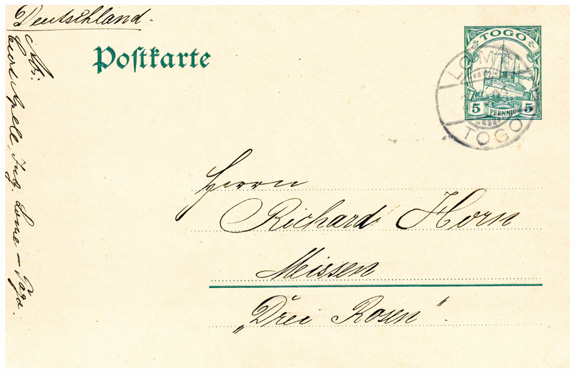 Deutschland.
Postkarte
TOGO
5 PFENNIG 5
LOME
TOGO
Herrn
Richard Horn
Meissen
„Drei Rosen“.
Abs: Apelt, Ing. Lome – Togo.